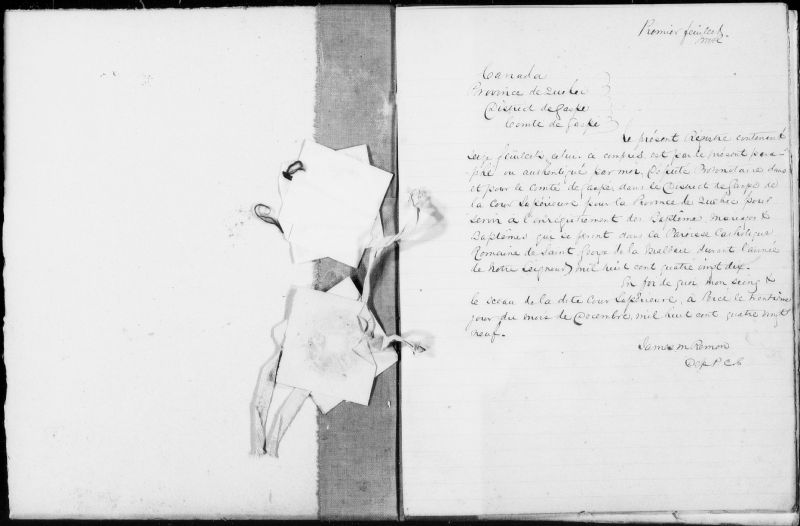 Premier feuillet
Canada
Province de Quebec
District de Gaspe
Comte de Gaspe
Le présent Registre contenant
seize feuillets, celui ci compris est par le présent para-
phé ou authentiqué par moi, Député Protonotaire dans
et pour le Comté de Gaspe, dans le District de Gaspe de
la Cour Supérieure pour la Province de Quebec pour
servir a l'enregistrement des Baptême, Mariages &
Baptêmes que se feront dans la Paroisse Catholique
Romaine de Saint George de la Malbaie durant l'année
de Notre Seigneur mil huit cent quatre vingt dix.
En foi de quoi mon seing &
le sceau de la dite Cour Supérieure, a Percé le trentième
jour du mois de Decembre, mil huit cent quatre vingt
neuf.
James M Remon
Dep P.C.S